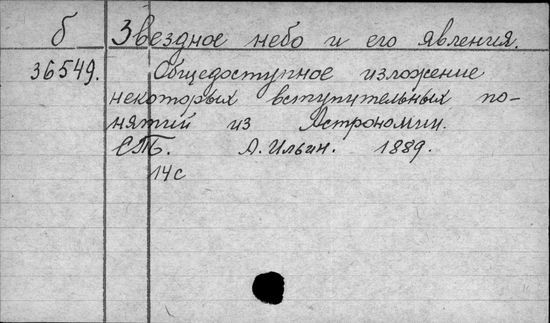 б Звездное небо и его явления.
36549. Общедоступное изложение
некоторых вступительных по-
нятий из Астрономии.
СПБ. А. Ильин. 1889.
14 с